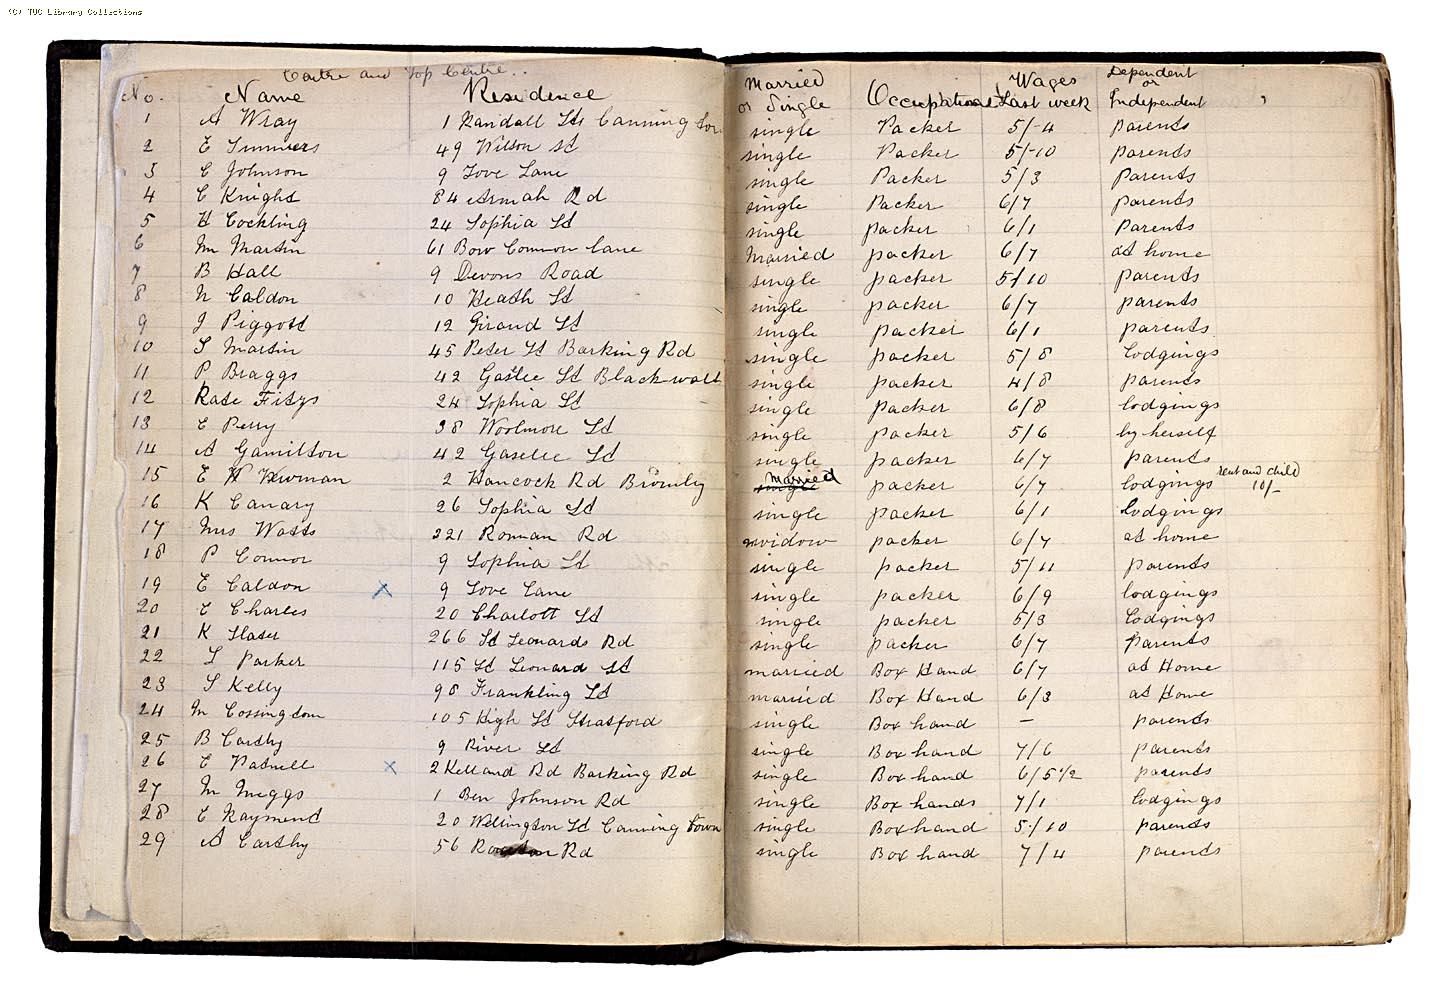 (C) TUC Library Collections
Centre and Top Centre..
No. Name Residence Married or Single Occupation Wages Last week Dependent or Independent
1 A Wray 1 Randall St Canning Tow single Packer 5/-4 parents
2 E Summers 49 Wilson st single Packer 5/-10 parents
3 C Johnson 9 Love Lane single Packer 5/3 Parents
4 C Knight 84 Armah Rd single Packer 6/7 parents
5 H Cockling 24 Sophia St single packer 6/1 Parents
6 Mr Martin 61 Bow Common Lane Married packer 6/7 at home
7 B Hall 9 Devons Road single packer 5/10 parents
8 N Caldon 10 Heath St single packer 6/7 parents
9 J Piggott 12 Giraud St single packer 6/1 parents
10 S Martin 45 Peter St Barking Rd single packer 5/8 lodgings
11 P Braggs 42 Gaslee St Blackwall single packer 4/8 parents
12 Kate Fitzs 24 Sophia St single packer 6/8 lodgings
13 C Perry 38 Woolmore St single packer 5/6 by herself
14 A Gamilton 42 Gaselee St single packer 6/7 parents
15 E Newman 2 Hancock Rd Bromley single Married packer 6/7 lodgings rent and child 10/-
16 K Canary 26 Sophia St single packer 6/1 Lodgings
17 Mrs Watts 221 Roman Rd widow packer 6/7 at home
18 P Connor 9 Sophia St single packer 5/11 parents
19 E Caldon x 9 Love Lane single packer 6/9 lodgings
20 E Charles 20 Charlott St single packer 5/3 Lodgings
21 K Slater 266 St Leonards Rd single packer 6/7 Parents
22 L Parker 115 St Leonard St married Box Hand 6/7 at Home
23 S Kelly 98 Frankling St married Box Hand 6/3 at Home
24 M Cossingdom 105 High St Stratford single Box hand – parents
25 B Carthy 9 River St single Box hand 7/6 parents
26 E Patnell x 2 Kelland Rd Barking Rd single Box hand 6/5 1/2 parents
27 M Meggs 1 Ben Johnson Rd single Box hands 7/1 lodgings
28 C Raymend 20 Wellington St Canning Town single Box hand 5/10 parents
29 A Carthy 56 Rd single Box hand 7/4 parents